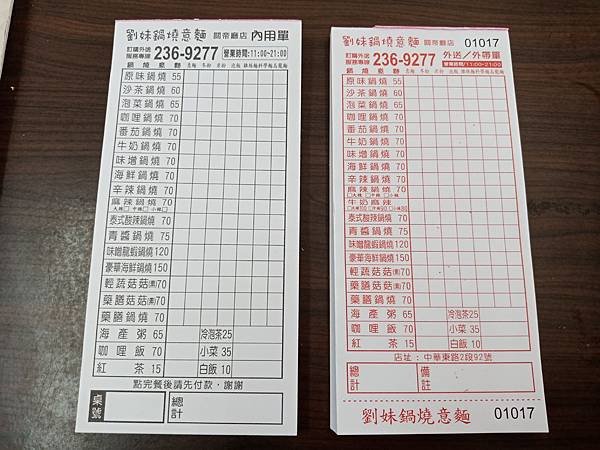 劉妹鍋燒意麵 關帝廳店 內用單
訂購外送
服務專線 236-9277 營業時間:11:00~21:00
鍋燒意麵
原味鍋燒 55
沙茶鍋燒 60
泡菜鍋燒 60
咖哩鍋燒 70
番茄鍋燒 70
牛奶鍋燒 70
味增鍋燒 70
海鮮鍋燒 70
辛辣鍋燒 70
麻辣鍋燒 70
大辣□ 中辣□ 小辣□
泰式酸辣鍋燒 70
青醬鍋燒 75
味噌龍蝦鍋燒 120
豪華海鮮鍋燒 150
輕蔬菇菇(素) 70
藥膳菇菇(素) 70
藥膳鍋燒 70
海產粥 65 冷泡茶 25
咖哩飯 70 小菜 35
紅茶 15 白飯 10
點完餐後請先付款,謝謝
桌號 總計
劉妹鍋燒意麵 關帝廳店 01017
訂購外送
服務專線 236-9277 外送/外帶單
營業時間/11:00~21:00
鍋燒意麵
原味鍋燒 55
沙茶鍋燒 60
泡菜鍋燒 60
咖哩鍋燒 70
番茄鍋燒 70
牛奶鍋燒 70
味增鍋燒 70
海鮮鍋燒 70
辛辣鍋燒 70
麻辣鍋燒 70
□大辣 □中辣 □小辣
牛奶麻辣
泰式酸辣鍋燒 70
青醬鍋燒 75
味噌龍蝦鍋燒 120
豪華海鮮鍋燒 150
輕蔬菇菇(素) 70
藥膳菇菇(素) 70
藥膳鍋燒 70
海產粥 65 冷泡茶 25
咖哩飯 70 小菜 35
紅茶 15 白飯 10
店址:中華東路2段92號
總計 備註
劉妹鍋燒意麵 01017